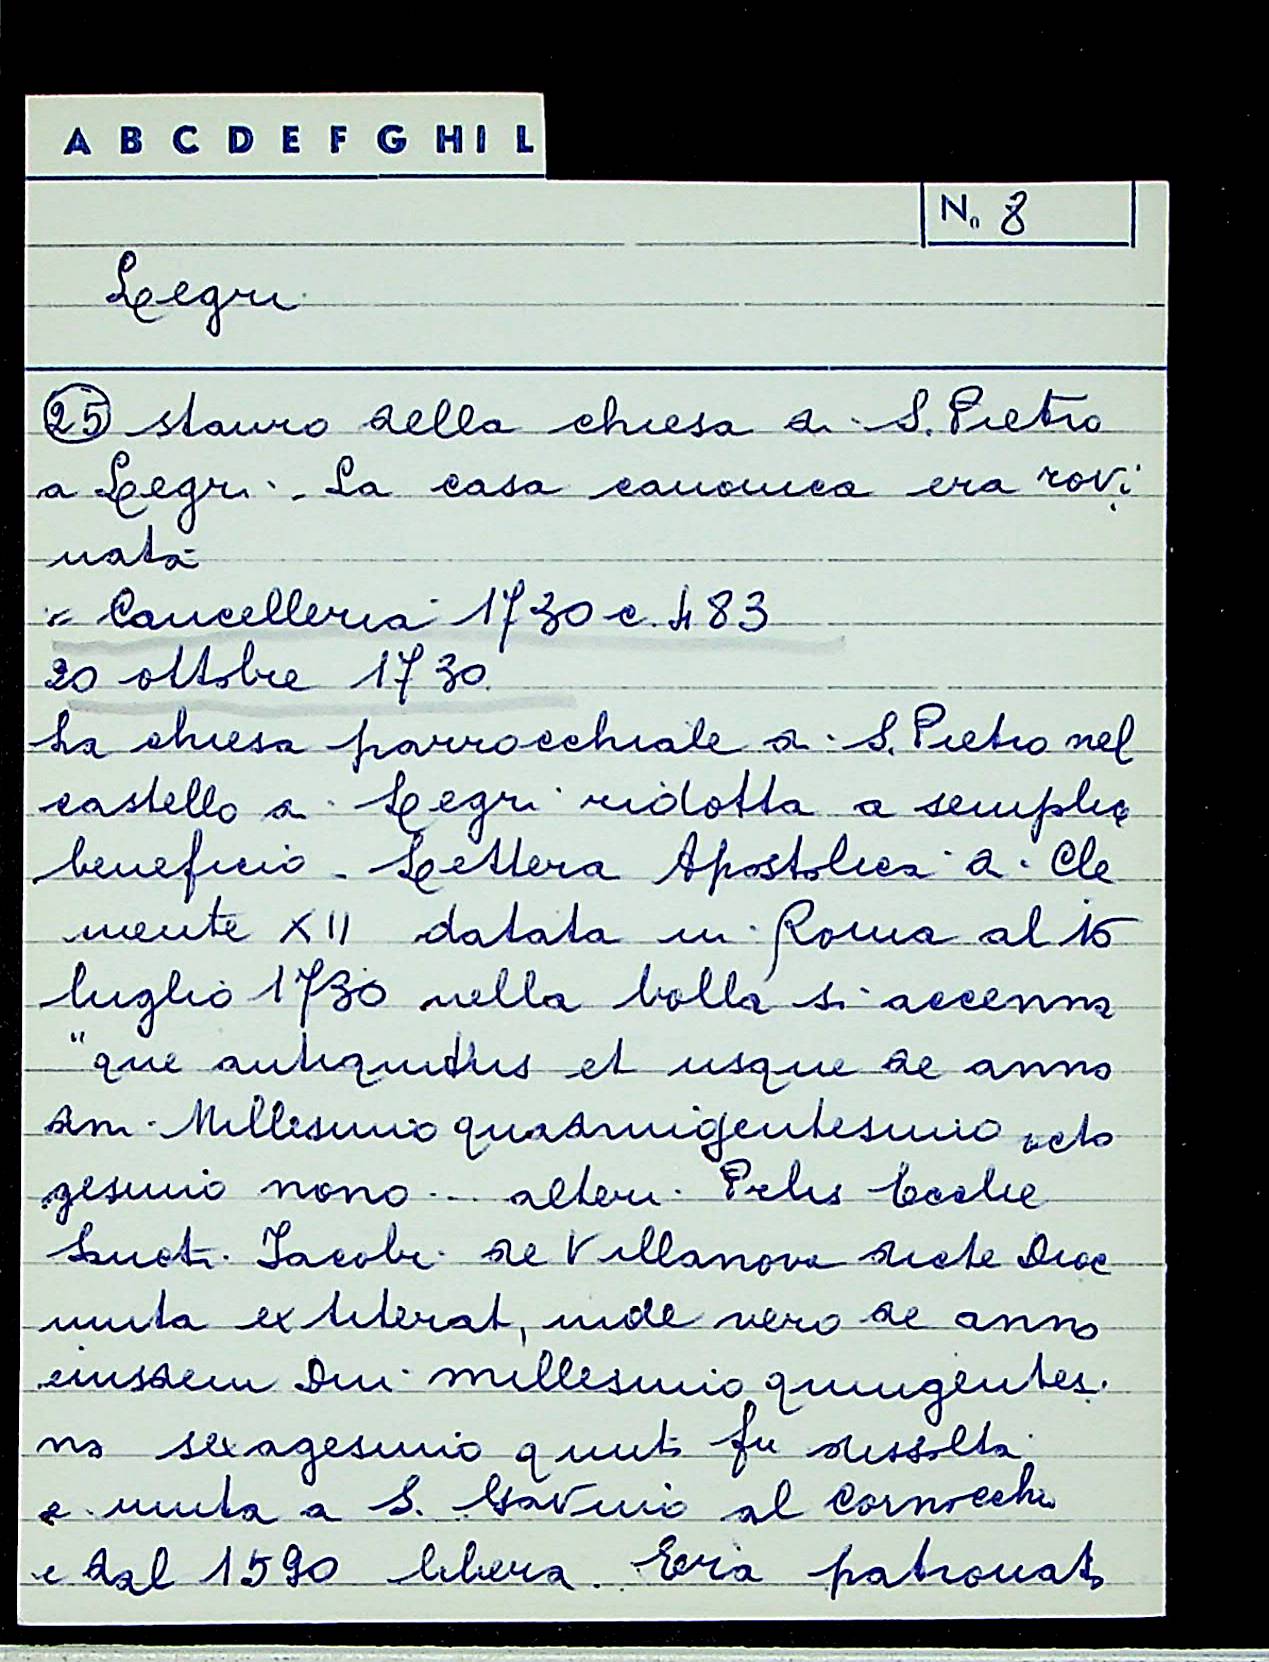 A B C D E F G H I L
N. 8
Legri
25 stauro della chiesa di S. Pietro
a Legri. La casa canonica era rovi
nata
= Cancelleria 1730 c. 483
20 ottobre 1730
La chiesa parrocchiale di S. Pietro nel
castello di Legri ridotta a semplice
beneficio. Lettera Apostolica di Cle
mente XII datata in Roma al 15
luglio 1730 nella bolla si accenna
"que antiquitus et usque de anno
Dni. Millesimo quadringentesimo octo
gesimo nono ... alteri Pchis Ecclie
Sancti Jacobi de Villanova dicte Dioc
unita extiterat, inde vero de anno
eiusdem Dni millesimo quingentesi
mo sexagesimo quinto fu dissolta
e unita a S. Gavino al Cornocchio
e dal 1590 libera. Era patronato